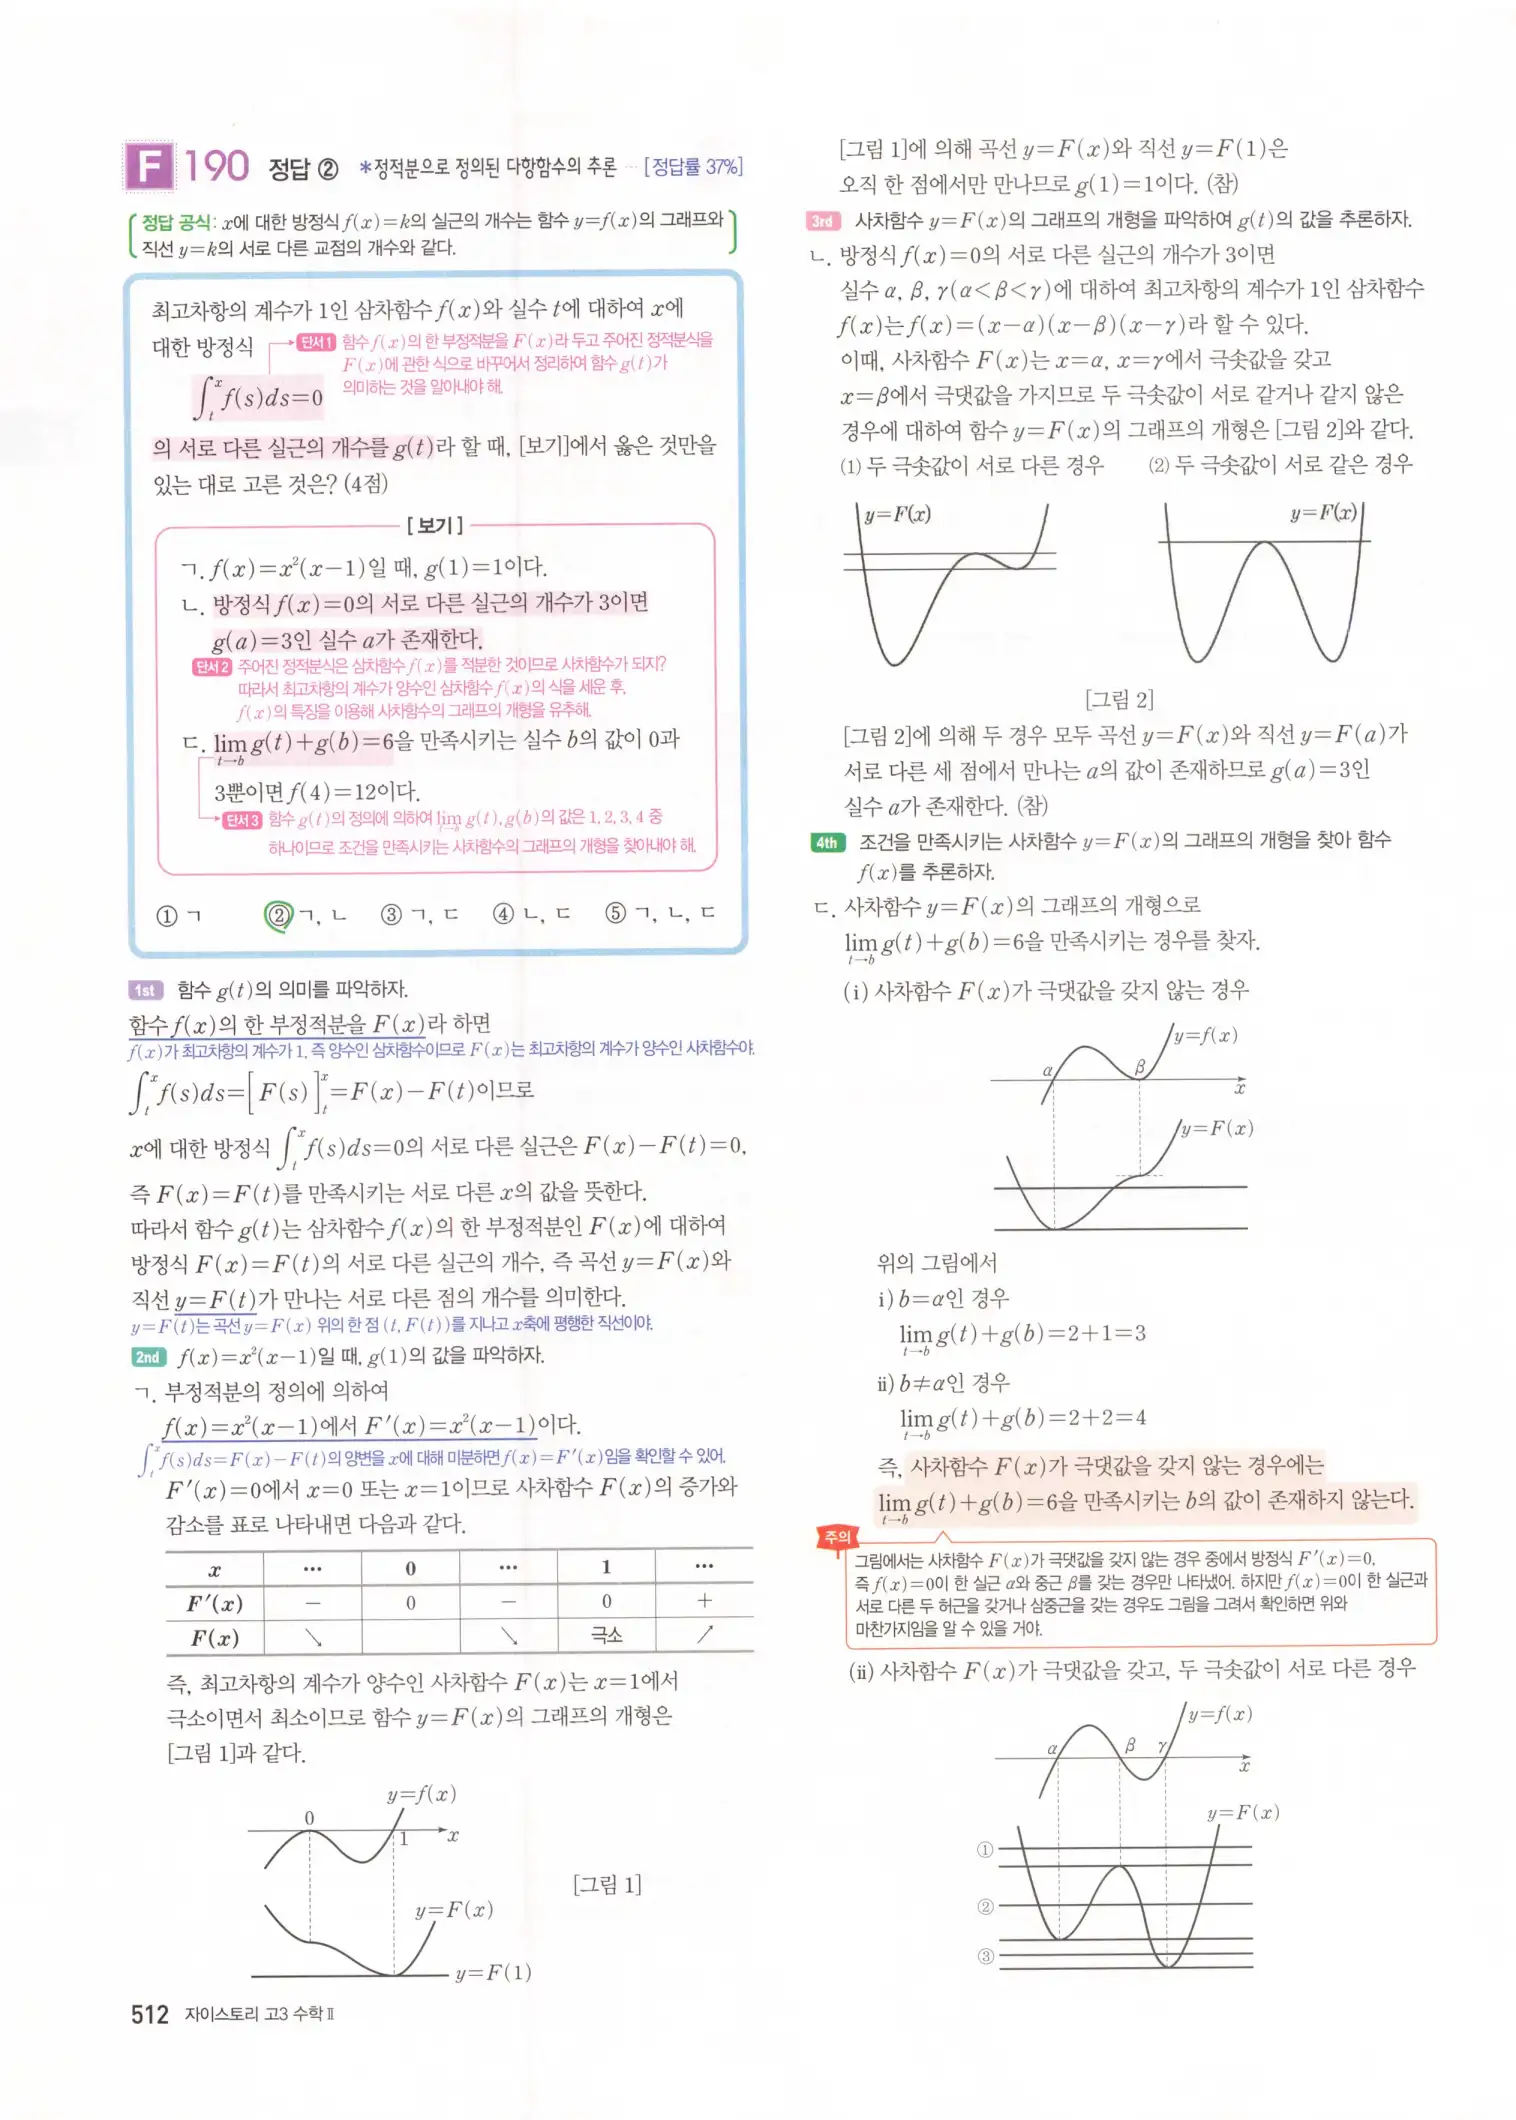 F 190 정답 ② *정적분으로 정의된 다항함수의 추론 ··· [정답률 37%]
정답 공식: x에 대한 방정식 f(x)=k의 실근의 개수는 함수 y=f(x)의 그래프와
직선 y=k의 서로 다른 교점의 개수와 같다.
최고차항의 계수가 1인 삼차함수 f(x)와 실수 t에 대하여 x에
대한 방정식
단서1 함수 f(x)의 한 부정적분을 F(x)라 두고 주어진 정적분식을
F(x)에 관한 식으로 바꾸어서 정리하여 함수 g(t)가
의미하는 것을 알아내야 해.
∫ₜˣ f(s)ds=0
의 서로 다른 실근의 개수를 g(t)라 할 때, [보기]에서 옳은 것만을
있는 대로 고른 것은? (4점)
[보기]
ㄱ. f(x)=x²(x-1)일 때, g(1)=1이다.
ㄴ. 방정식 f(x)=0의 서로 다른 실근의 개수가 3이면
g(a)=3인 실수 a가 존재한다.
단서2 주어진 정적분식은 삼차함수 f(x)를 적분한 것이므로 사차함수가 되지?
따라서 최고차항의 계수가 양수인 삼차함수 f(x)의 식을 세운 후,
f(x)의 특징을 이용해 사차함수의 그래프의 개형을 유추해.
ㄷ. lim g(t)+g(b)=6을 만족시키는 실수 b의 값이 0과
t→b
3뿐이면 f(4)=12이다.
단서3 함수 g(t)의 정의에 의하여 lim g(t), g(b)의 값은 1, 2, 3, 4 중
t→b
하나이므로 조건을 만족시키는 사차함수의 그래프의 개형을 찾아내야 해.
① ㄱ ② ㄱ, ㄴ ③ ㄱ, ㄷ ④ ㄴ, ㄷ ⑤ ㄱ, ㄴ, ㄷ
1st 함수 g(t)의 의미를 파악하자.
함수 f(x)의 한 부정적분을 F(x)라 하면
f(x)가 최고차항의 계수가 1, 즉 양수인 삼차함수이므로 F(x)는 최고차항의 계수가 양수인 사차함수야.
∫ₜˣ f(s)ds=[F(s)]ₜˣ=F(x)-F(t)이므로
x에 대한 방정식 ∫ₜˣ f(s)ds=0의 서로 다른 실근은 F(x)-F(t)=0,
즉 F(x)=F(t)를 만족시키는 서로 다른 x의 값을 뜻한다.
따라서 함수 g(t)는 삼차함수 f(x)의 한 부정적분인 F(x)에 대하여
방정식 F(x)=F(t)의 서로 다른 실근의 개수, 즉 곡선 y=F(x)와
직선 y=F(t)가 만나는 서로 다른 점의 개수를 의미한다.
y=F(t)는 곡선 y=F(x) 위의 한 점 (t, F(t))를 지나고 x축에 평행한 직선이야.
2nd f(x)=x²(x-1)일 때, g(1)의 값을 파악하자.
ㄱ. 부정적분의 정의에 의하여
f(x)=x²(x-1)에서 F′(x)=x²(x-1)이다.
∫ₜˣ f(s)ds=F(x)-F(t)의 양변을 x에 대해 미분하면 f(x)=F′(x)임을 확인할 수 있어.
F′(x)=0에서 x=0 또는 x=1이므로 사차함수 F(x)의 증가와
감소를 표로 나타내면 다음과 같다.
x ··· 0 ··· 1 ···
F′(x) - 0 - 0 +
F(x) ↘ ↘ 극소 ↗
즉, 최고차항의 계수가 양수인 사차함수 F(x)는 x=1에서
극소이면서 최소이므로 함수 y=F(x)의 그래프의 개형은
[그림 1]과 같다.
y=f(x)
0
1
x
y=F(x)
y=F(1)
[그림 1]
512 자이스토리 고3 수학Ⅱ
[그림 1]에 의해 곡선 y=F(x)와 직선 y=F(1)은
오직 한 점에서만 만나므로 g(1)=1이다. (참)
3rd 사차함수 y=F(x)의 그래프의 개형을 파악하여 g(t)의 값을 추론하자.
ㄴ. 방정식 f(x)=0의 서로 다른 실근의 개수가 3이면
실수 α, β, γ(α<β<γ)에 대하여 최고차항의 계수가 1인 삼차함수
f(x)는 f(x)=(x-α)(x-β)(x-γ)라 할 수 있다.
이때, 사차함수 F(x)는 x=α, x=γ에서 극솟값을 갖고
x=β에서 극댓값을 가지므로 두 극솟값이 서로 같거나 같지 않은
경우에 대하여 함수 y=F(x)의 그래프의 개형은 [그림 2]와 같다.
(1) 두 극솟값이 서로 다른 경우 (2) 두 극솟값이 서로 같은 경우
y=F(x)
y=F(x)
[그림 2]
[그림 2]에 의해 두 경우 모두 곡선 y=F(x)와 직선 y=F(a)가
서로 다른 세 점에서 만나는 a의 값이 존재하므로 g(a)=3인
실수 a가 존재한다. (참)
4th 조건을 만족시키는 사차함수 y=F(x)의 그래프의 개형을 찾아 함수
f(x)를 추론하자.
ㄷ. 사차함수 y=F(x)의 그래프의 개형으로
lim g(t)+g(b)=6을 만족시키는 경우를 찾자.
t→b
(i) 사차함수 F(x)가 극댓값을 갖지 않는 경우
y=f(x)
α
β
x
y=F(x)
위의 그림에서
i) b=α인 경우
lim g(t)+g(b)=2+1=3
t→b
ii) b≠α인 경우
lim g(t)+g(b)=2+2=4
t→b
즉, 사차함수 F(x)가 극댓값을 갖지 않는 경우에는
lim g(t)+g(b)=6을 만족시키는 b의 값이 존재하지 않는다.
t→b
주의
그림에서는 사차함수 F(x)가 극댓값을 갖지 않는 경우 중에서 방정식 F′(x)=0,
즉 f(x)=0이 한 실근 α와 중근 β를 갖는 경우만 나타냈어. 하지만 f(x)=0이 한 실근과
서로 다른 두 허근을 갖거나 삼중근을 갖는 경우도 그림을 그려서 확인하면 위와
마찬가지임을 알 수 있을 거야.
(ii) 사차함수 F(x)가 극댓값을 갖고, 두 극솟값이 서로 다른 경우
y=f(x)
α
β
γ
x
y=F(x)
①
②
③